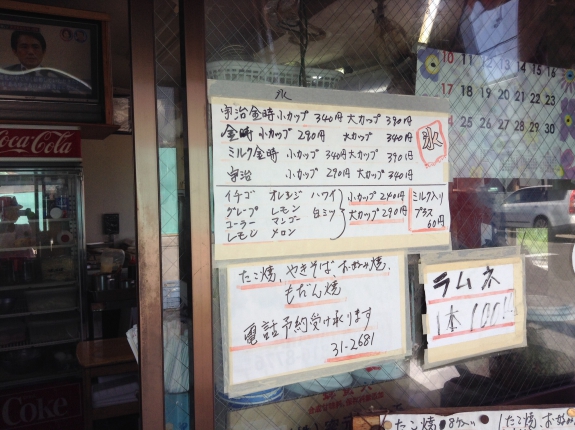 氷
宇治金時 小カップ 340円 大カップ 390円
金時 小カップ 290円 大カップ 340円
ミルク金時 小カップ 340円 大カップ 390円
宇治 小カップ 290円 大カップ 340円
氷
イチゴ オレンジ ハワイ
グレープ レモン 白ミツ
コーラー マンゴー
レモン メロン
小カップ 240円
大カップ 290円
ミルク入り
プラス
60円
たこ焼、やきそば、お好み焼、
もだん焼
電話予約受け承ります
31-2681
ラムネ
1本
Coca-Cola
Coke
10 11 12 13 14 15 16
17 18 19 20 21 22 23
24 25 26 27 28 29 30
たこ焼